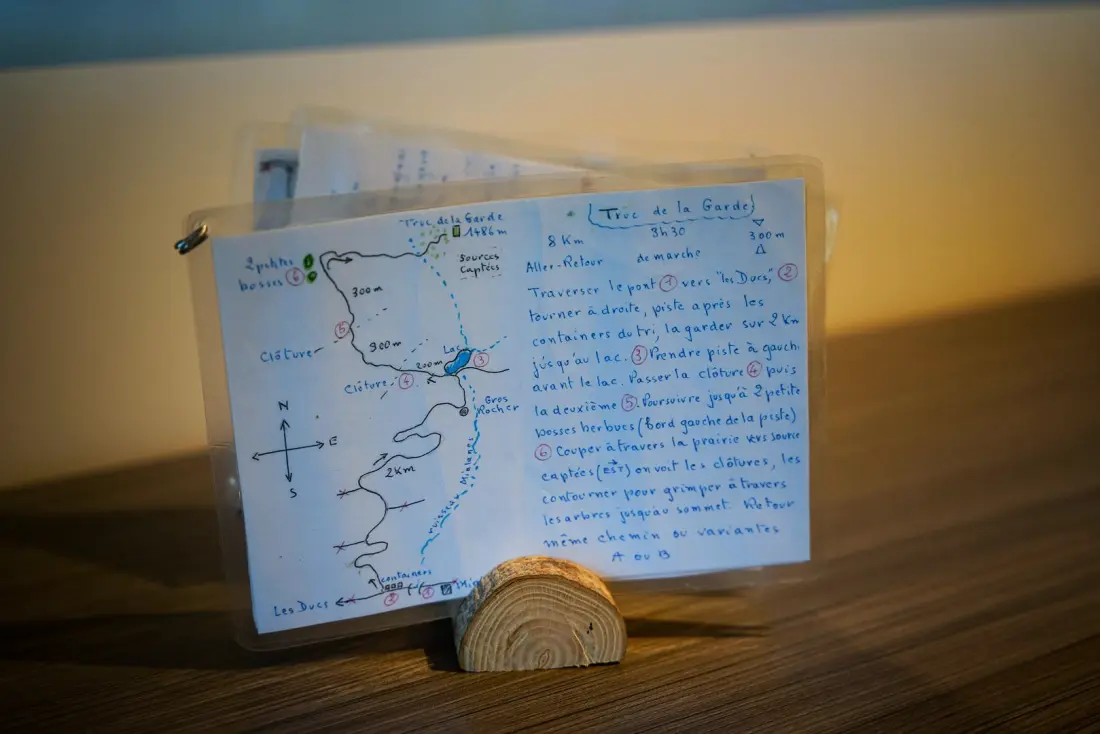 Truc de la Garde
1486 m
2 petites
bosses ⑥
Sources
Captées
300 m
⑤
900 m
Clôture
Lac
200 m
③
Clôture ④
Gros
Rocher
N
E
S
2 Km
ruisseau Mialanes
containers
Les Ducs
②
①
Truc de la Garde
8 Km 3h30 300 m
Aller-Retour de marche
Traverser le pont ① vers "les Ducs", ②
tourner à droite, piste après les
containers du tri, la garder sur 2 Km
jusqu'au lac. ③ Prendre piste à gauch
avant le lac. Passer la clôture ④ puis
la deuxième ⑤. Poursuivre jusqu'à 2 petite
bosses herbues (bord gauche de la piste)
⑥ Couper à travers la prairie vers source
captées (EST) on voit les clôtures, les
contourner pour grimper à travers
les arbres jusqu'au sommet. Retour
même chemin ou variantes
A ou B